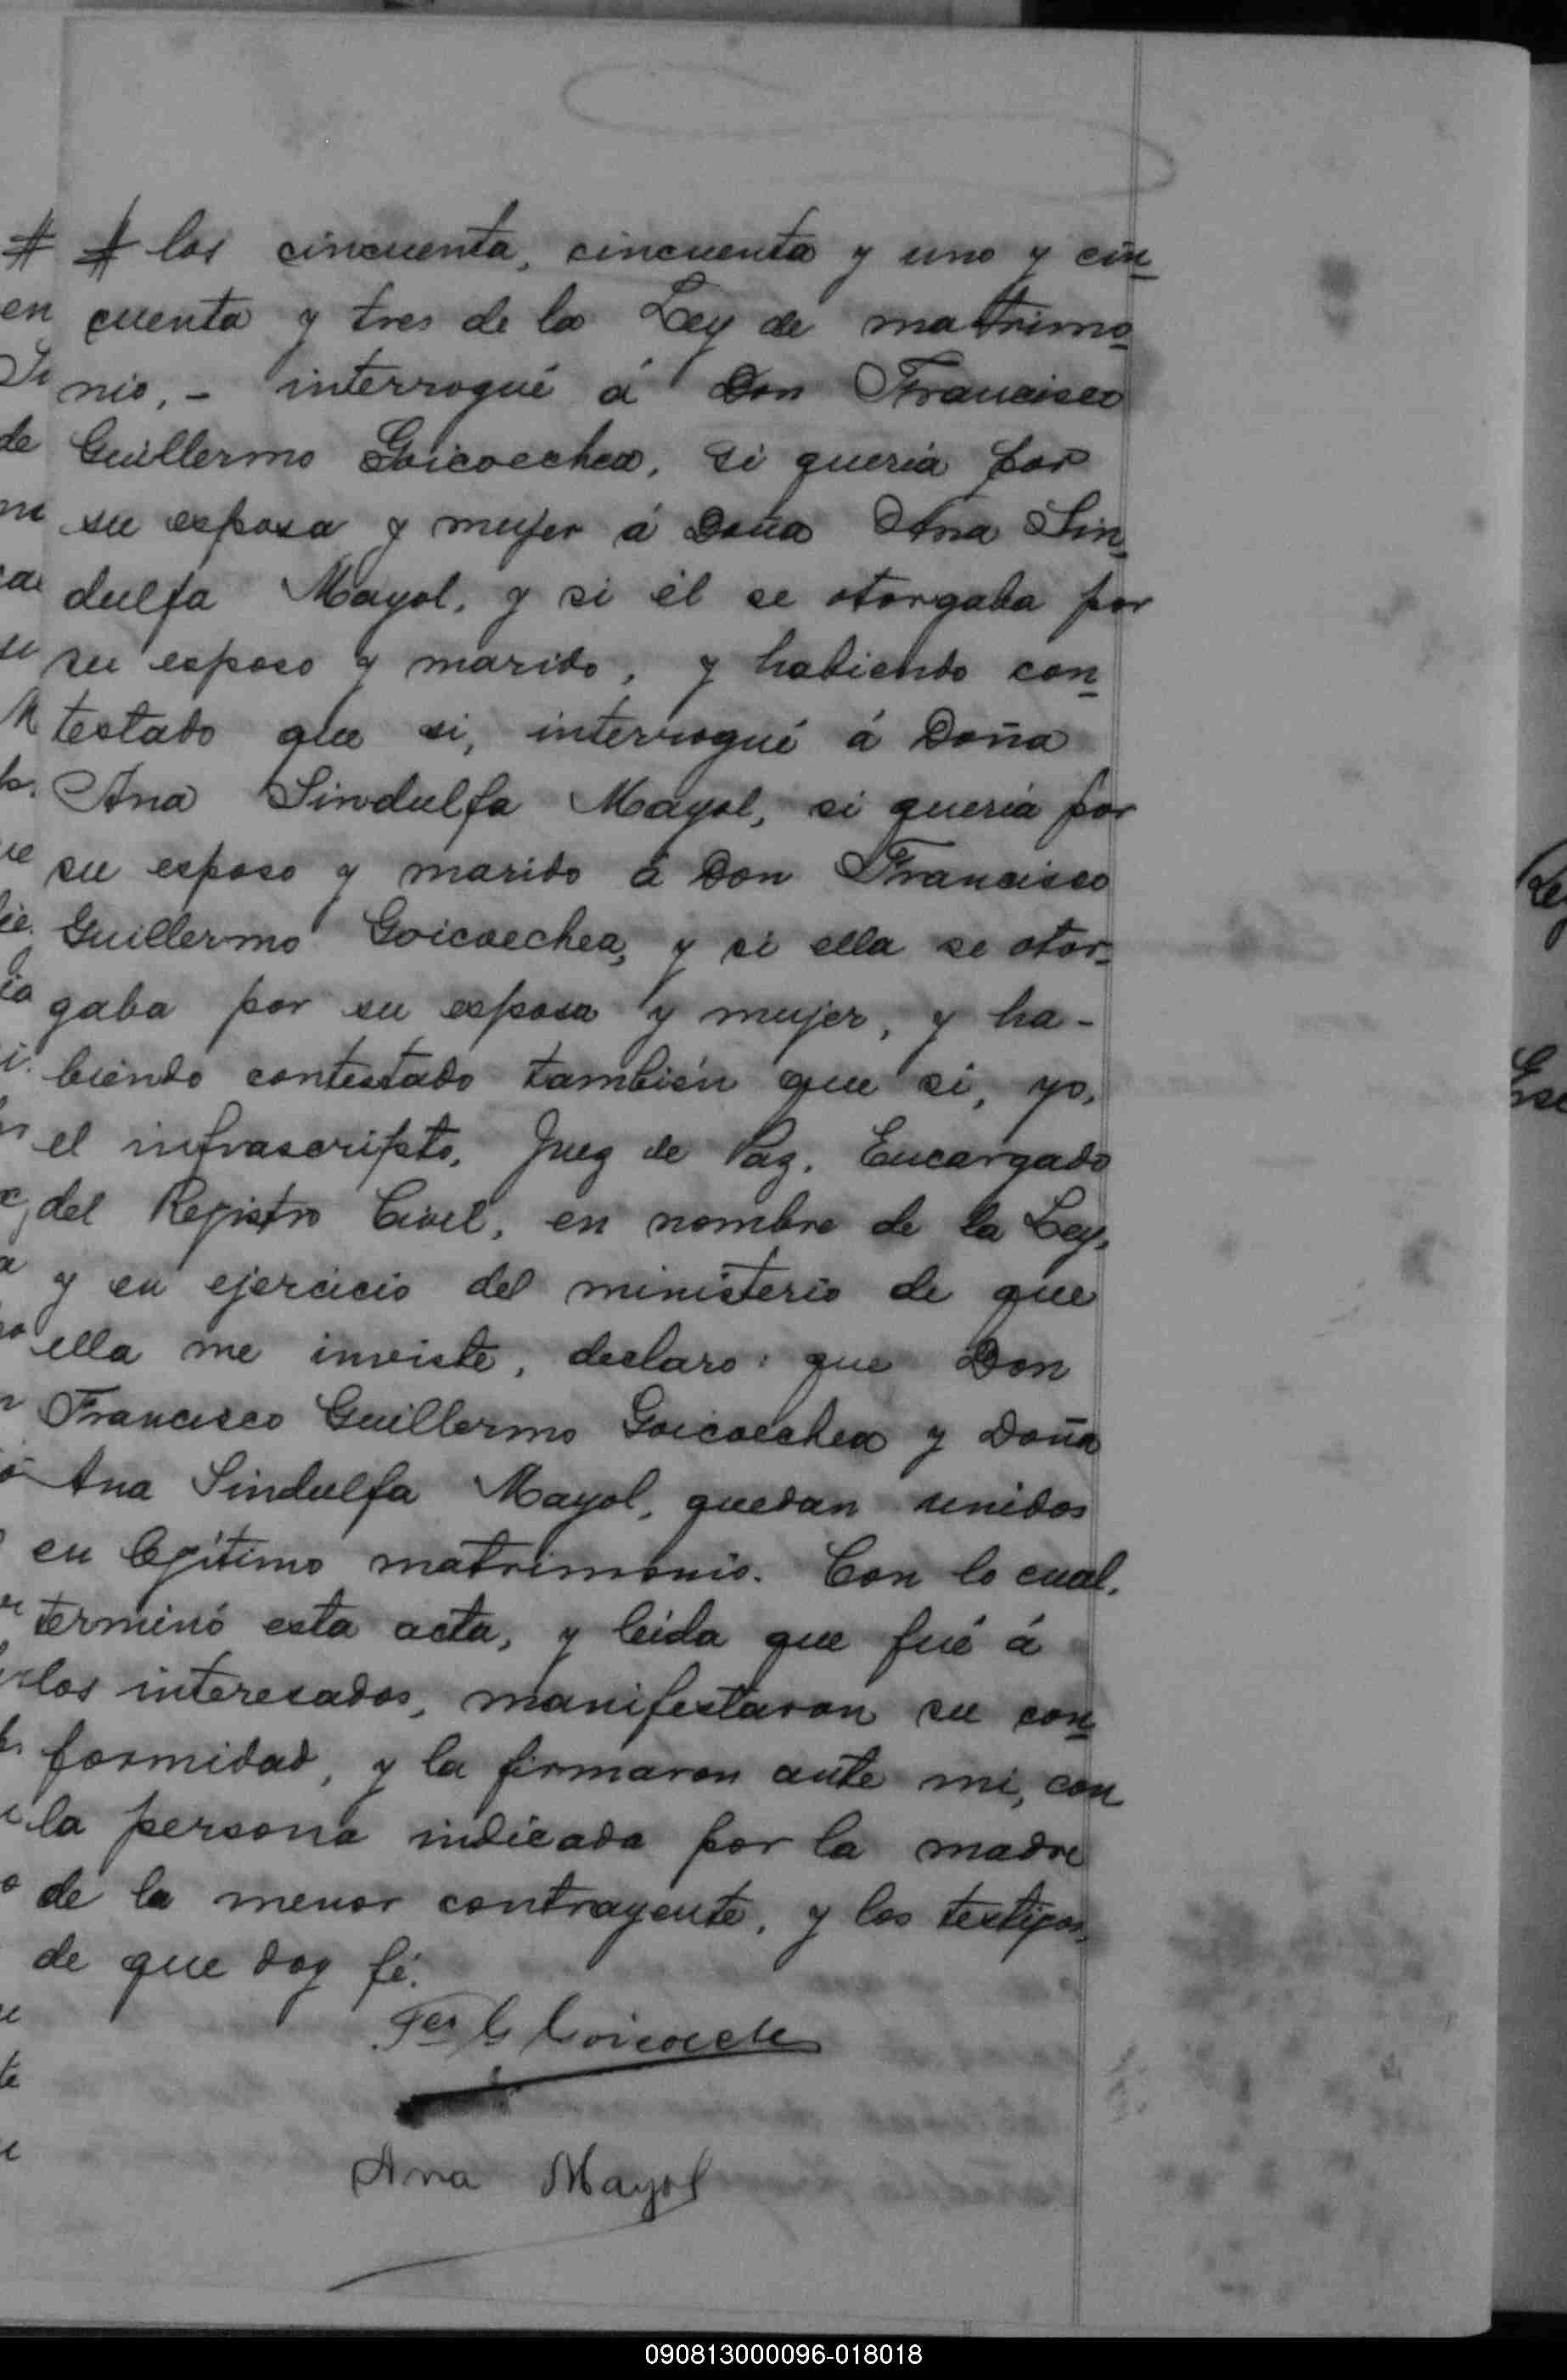 # # los cincuenta, cincuenta y uno y cin-
cuenta y tres de la Ley de matrimo-
nio, - interrogué á Don Francisco
Guillermo Goicoechea, si queria por
su esposa y mujer á Doña Ana Sin-
dulfa Mayol, y si él se otorgaba por
su esposo y marido, y habiendo con-
testado que si, interrogué á Doña
Ana Sindulfa Mayol, si queria por
su esposo y marido á Don Francisco
Guillermo Goicoechea, y si ella se otor-
gaba por su esposa y mujer, y ha-
biendo contestado también que si, yo,
el infrascripto, Juez de Paz, Encargado
del Registro Civil, en nombre de la Ley,
y en ejercicio del ministerio de que
ella me inviste, declaro: que Don
Francisco Guillermo Goicoechea y Doña
Ana Sindulfa Mayol, quedan unidos
en legítimo matrimonio. Con lo cual,
terminó esta acta, y leida que fué á
los interesados, manifestaron su con-
formidad, y la firmaron ante mi, con
la persona indicada por la madre
de la menor contrayente, y los testigos,
de que doy fé.
Fco G Goicoechea
Ana Mayol
090813000096-018018